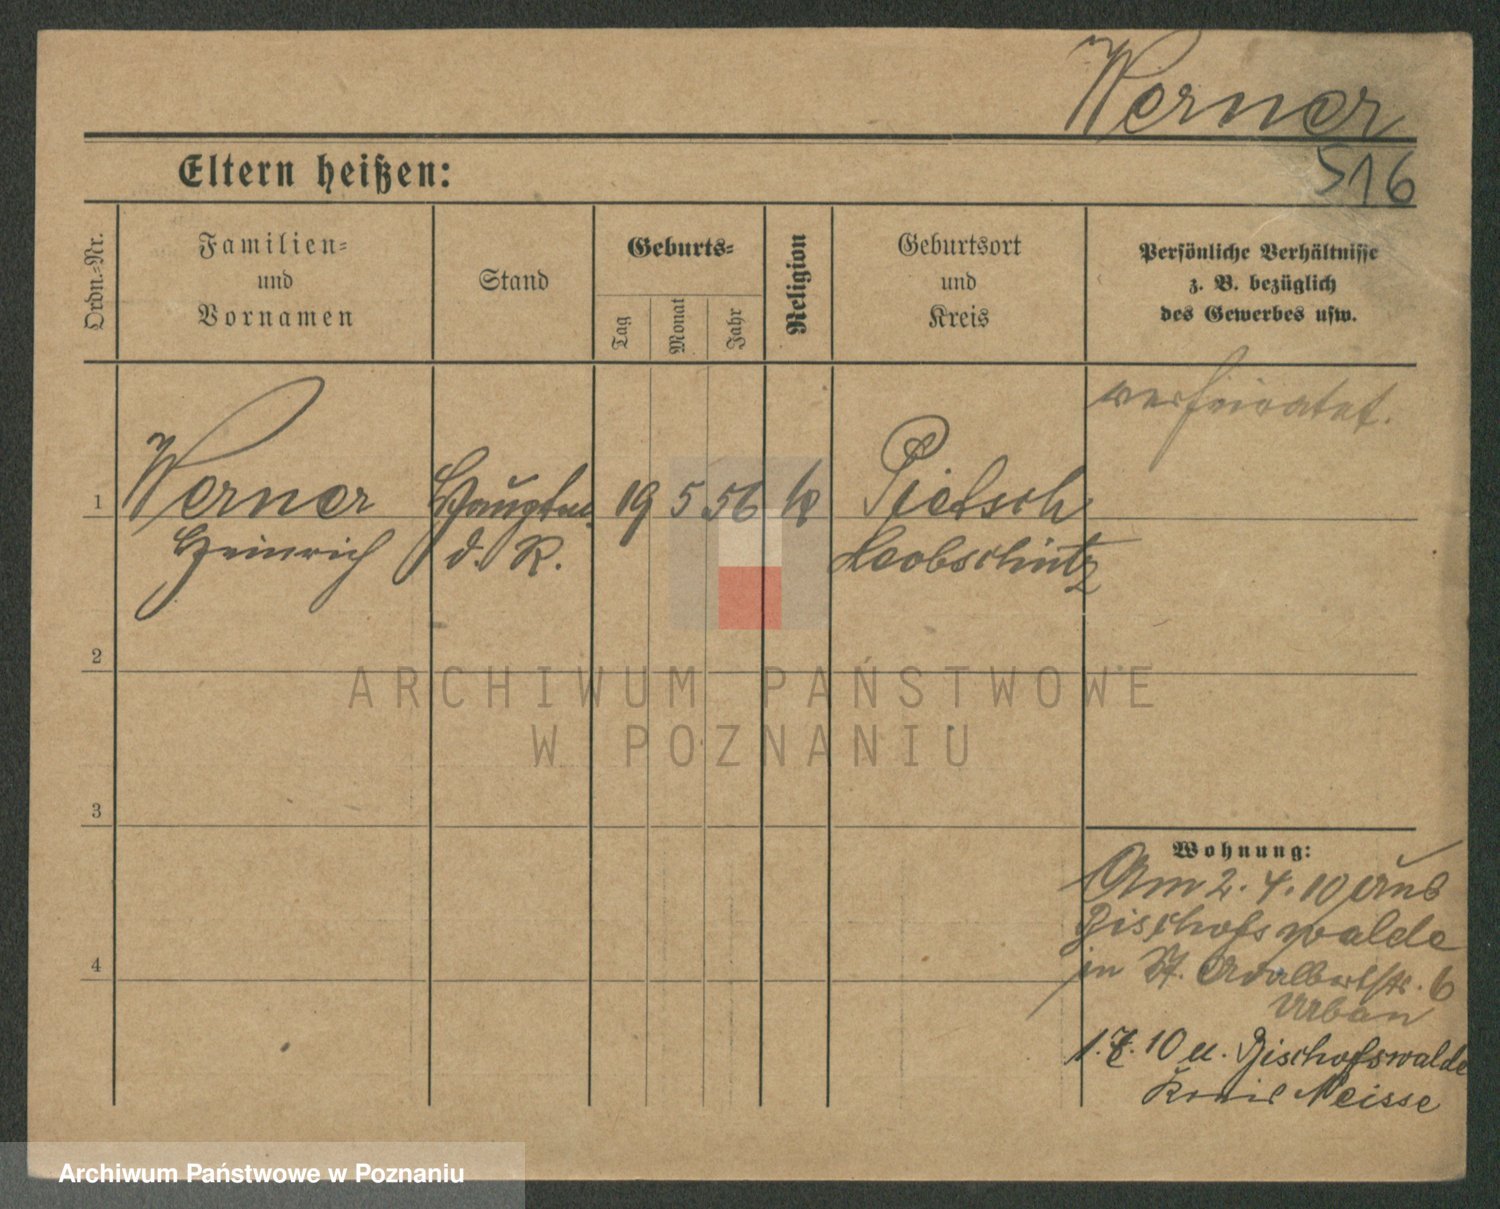 Werner
516
Eltern heißen:
Ordn.-Nr.
Familien-
und
Vornamen
Stand
Geburts-
Tag
Monat
Jahr
Religion
Geburtsort
und
Kreis
Persönliche Verhältnisse
z. B. bezüglich
des Gewerbes usw.
verheiratet.
1 Werner Hauptm. 19 5 56 k Pietsch
Heinrich d. R. Leobschütz
2
3
4
Wohnung:
Am 2. 4. 10 aus
Bischofswalde
in St. Adalbertstr. 6
Urban
1. 7. 10 n. Bischofswalde
Kreis Neisse
ARCHIWUM PAŃSTWOWE
W POZNANIU
Archiwum Państwowe w Poznaniu